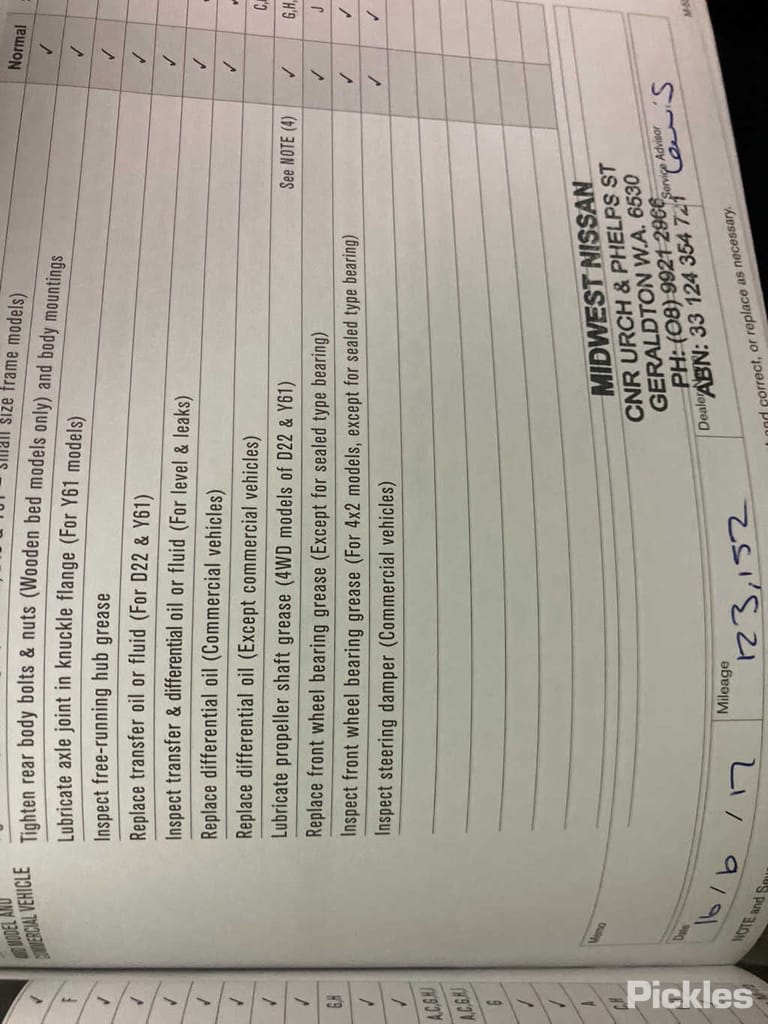 Normal
small size frame models)
Tighten rear body bolts & nuts (Wooden bed models only) and body mountings ✓
Lubricate axle joint in knuckle flange (For Y61 models) ✓
Inspect free-running hub grease ✓
Replace transfer oil or fluid (For D22 & Y61) ✓
Inspect transfer & differential oil or fluid (For level & leaks) ✓
Replace differential oil (Commercial vehicles) ✓
Replace differential oil (Except commercial vehicles) ✓
Lubricate propeller shaft grease (4WD models of D22 & Y61) See NOTE (4) ✓ G,H,
Replace front wheel bearing grease (Except for sealed type bearing) ✓ J
Inspect front wheel bearing grease (For 4x2 models, except for sealed type bearing) ✓ ✓
Inspect steering damper (Commercial vehicles) ✓ ✓
MODEL AND
COMMERCIAL VEHICLE
Memo
MIDWEST NISSAN
CNR URCH & PHELPS ST
GERALDTON W.A. 6530
PH: (08) 9921 2966
ABN: 33 124 354 721
Date
16/6/17
Mileage
123,152
Dealer
Service Advisor
Lewis
NOTE and
and correct, or replace as necessary.
✓
F
✓
✓
✓
✓
✓
✓
✓
G,H
✓
✓
A,C,G,H,J
A,C,G,H,J
G
✓
✓
A
C,H
Pickles